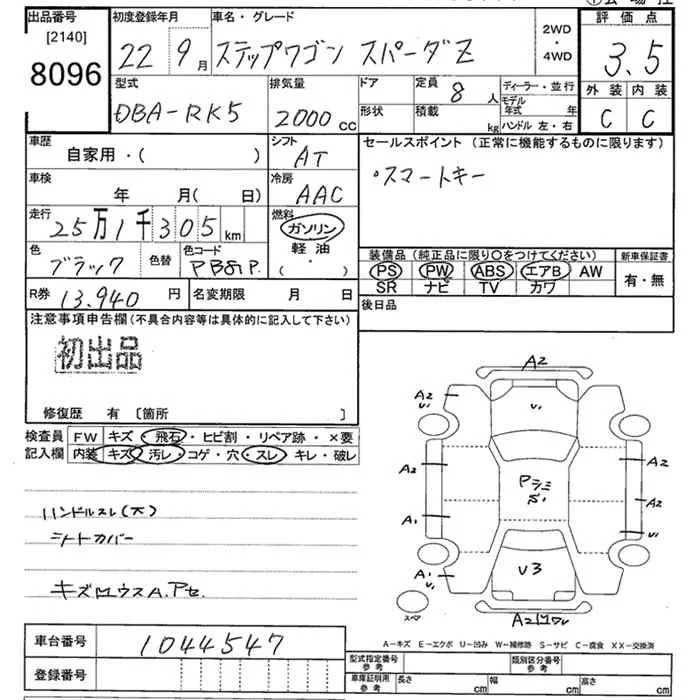 出品番号 初度登録年月 車名・グレード 2WD・4WD 評価点
[2140]
8096 22 9月 ステップワゴン スパーダZ 3.5
型式 排気量 ドア 定員 8人 ディーラー・並行 外装 内装
DBA-RK5 2000cc 形状 積載 kg モデル年式 年 C C
ハンドル 左・右
車歴 自家用・( ) シフト AT セールスポイント(正常に機能するものに限ります)
車検 年 月(日) 冷房 AAC ・スマートキー
走行 25万1千305km 燃料 ガソリン・軽油・( )
色 ブラック 色替 色コード PB81P. 装備品(純正品に限り○をつけてください) 新車保証書
PS PW ABS エアB AW 有・無
SR ナビ TV カワ
R券 13.940円 名変期限 月 日 後日品
注意事項申告欄(不具合内容等は具体的に記入して下さい)
初出品
修復歴 有 〔箇所 〕
検査員 FW キズ・飛石・ヒビ割・リペア跡・×要
記入欄 内装 キズ・汚レ・コゲ・穴・スレ・キレ・破レ
ハンドルスレ(大)
シートカバー
A2
A2 U1 U1
A2 A2
A2
A1 U1
A1 U1 U3
A2
A-キズ E-エクボ U-凹み W-補修跡 S-サビ C-腐食 XX-交換済
車台番号 1044547
登録番号
型式指定番号 参考 類別区分番号 参考
車庫証明用 参考 長さ cm 幅 cm 高さ cm